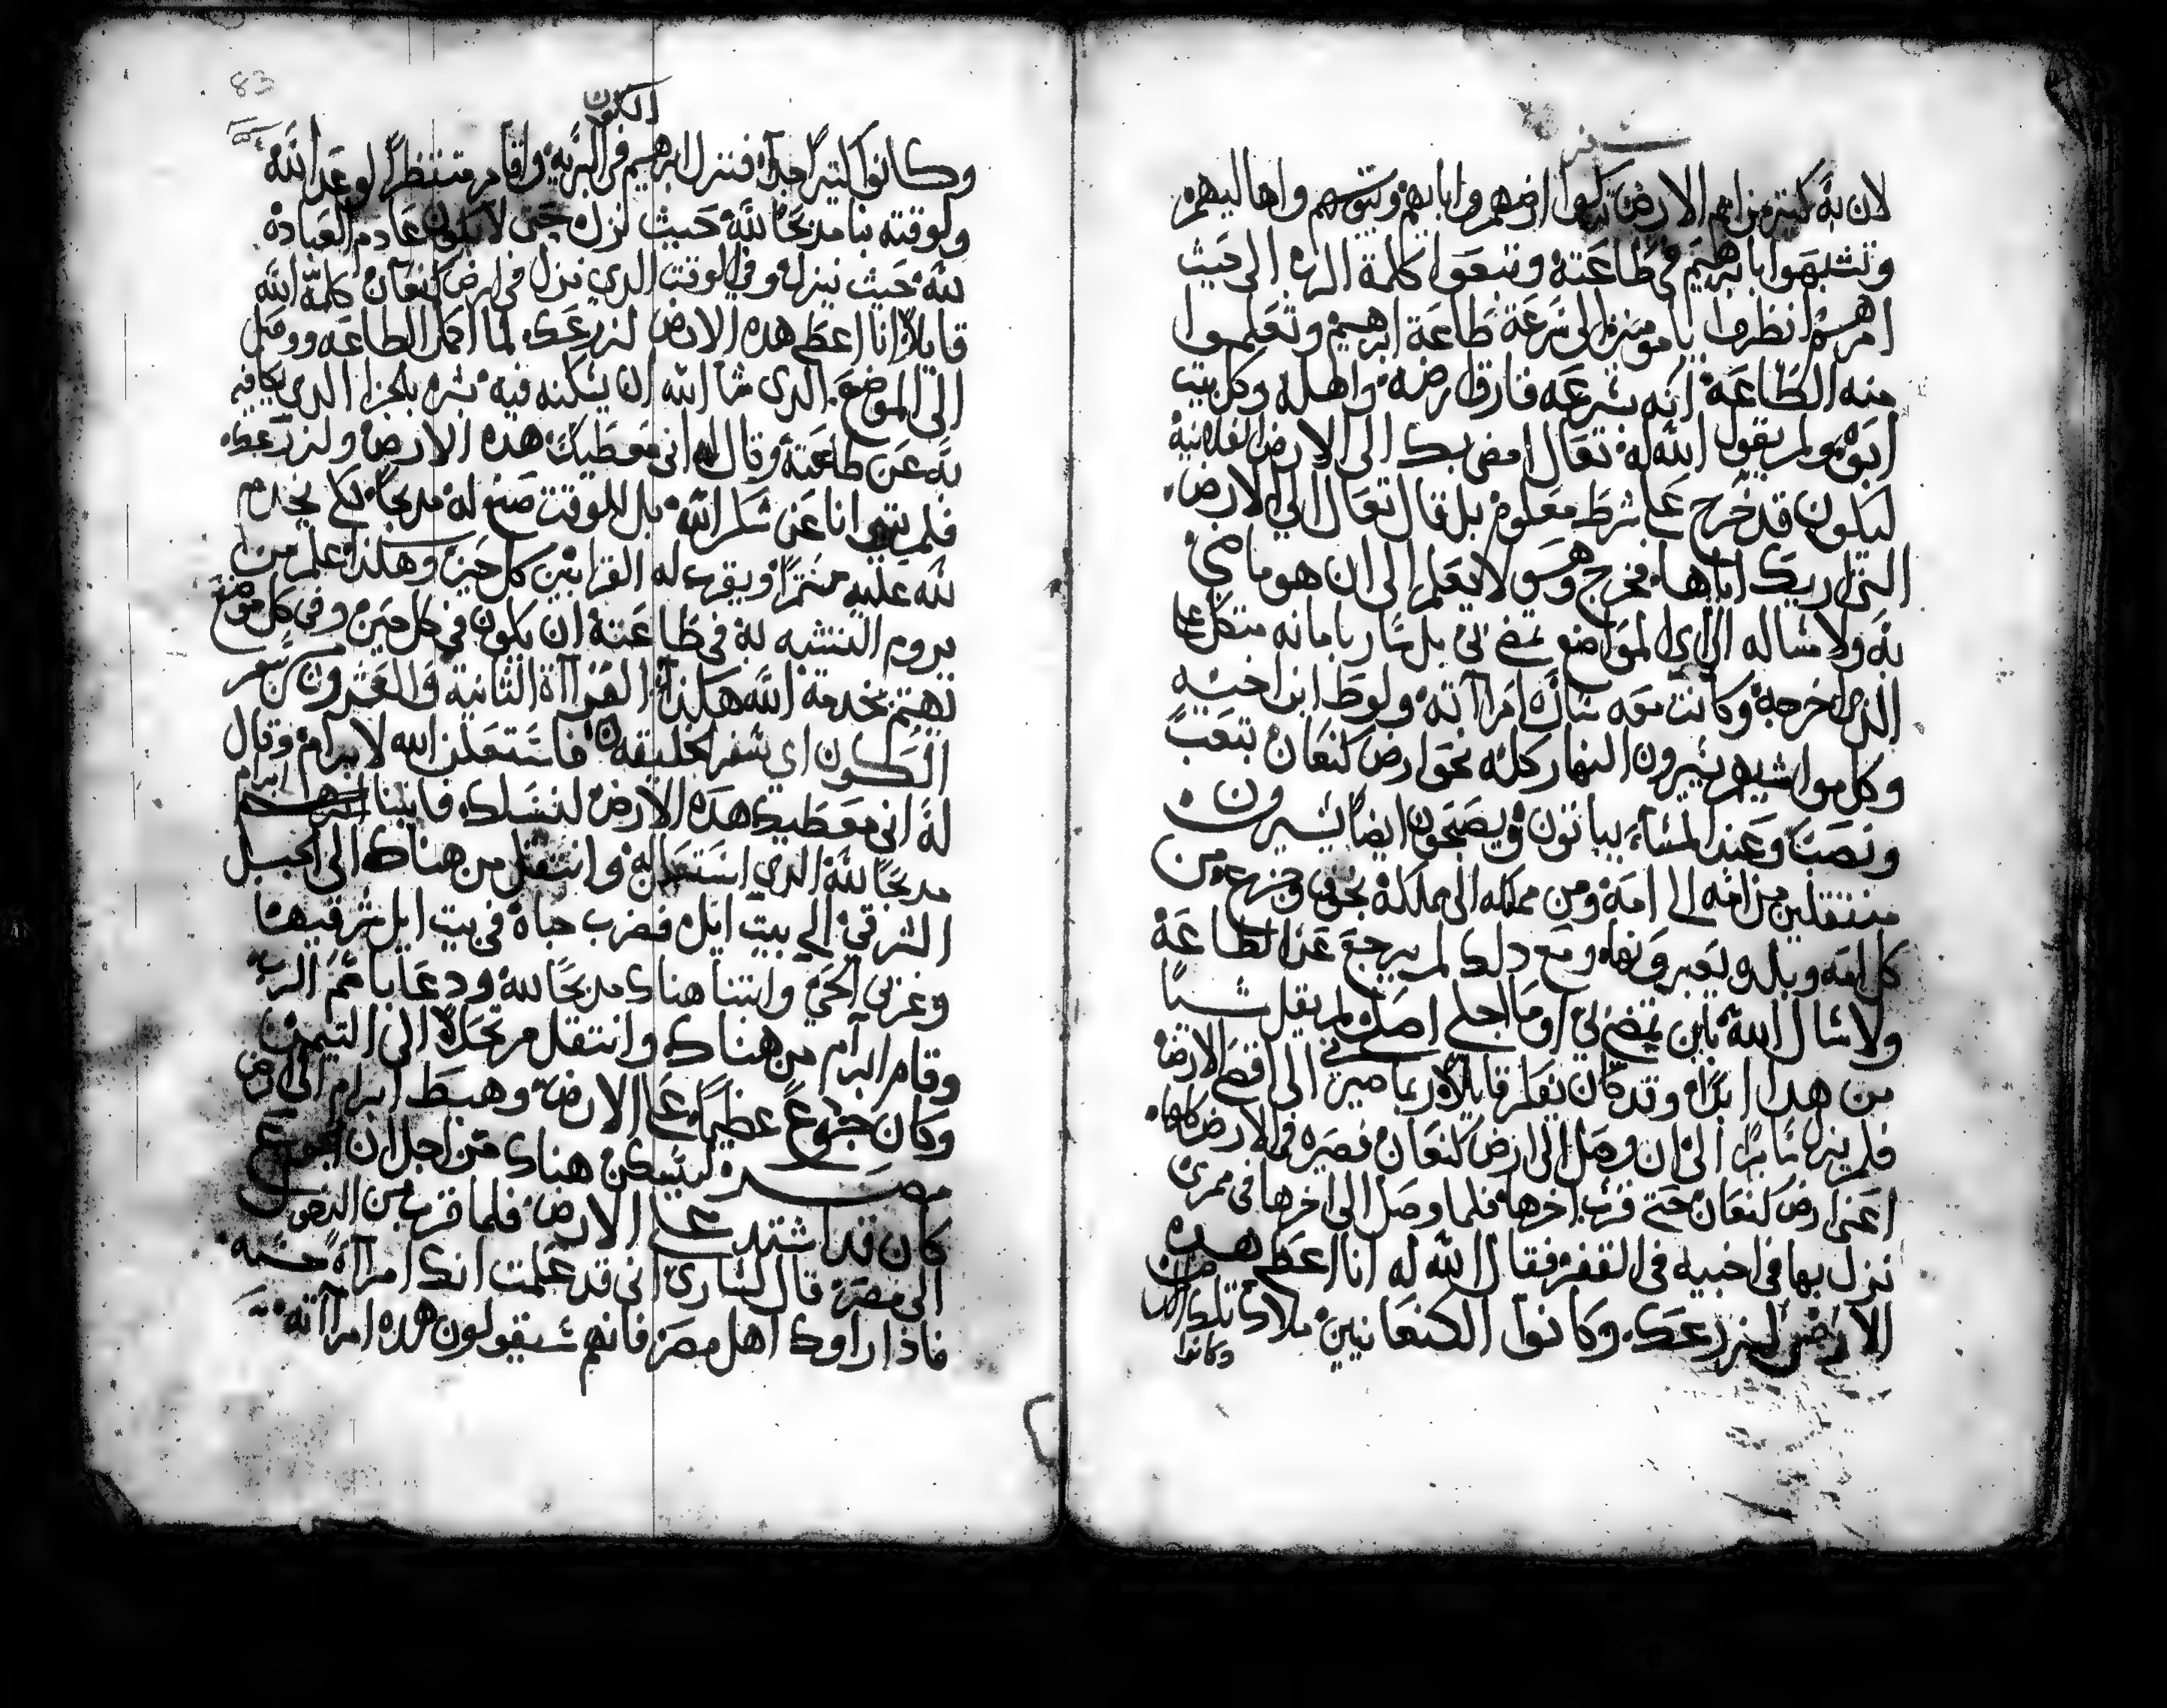 سفر
لان به كثير من امم الارض تركوا ارضهم وابايهم وبيوتهم واهاليهم
وتشبهوا بابرهيم في طاعته وتبعوا كلمة الرب الى حيث
امرهم انظروا يا مومنين الى سرعة طاعة ابرهيم وتعلموا
منه الطاعة انه بسرعه فارق ارضه واهله وكل بيت
ابوه ولم يقول الله له تعال امضى بك الى الارض الفلانية
ليكون قد خرج على شرط معلوم بل قال تعال الى الارض
التى اريك اياها فخرج وهو لا يعلم الى ان هو ماضي
ولا ساله الى اى المواضع تمضي بى بل سار بامانه متكل على
الذى اخرجه وكانت معه ساره امراته ولوط ابن اخيه
وكلموا شيهم يسيرون النهار كله نحو ارض كنعان بتعب
ونصب وعند المساء يباتون ويصبحون ايضا يسيرون
منتقلين من امه الى امه ومن مملكه الى مملكة بخوف وجزع من
كل امه وبلد يعبرونها ومع دلك لم يرجع عن الطاعة
ولا سال الله باين تمضي بى او ما اجلى اصل ولم يقل شيا
من هدا ابدا وقد كان يفكر قايلا ربما ميز الى اقصى الارض
فلم يزل ساير الى ان وصل الى ارض كنعان فصيره في الارض كلها
اعنى ارض كنعان حتى قرب اخرها فلما وصل الى اخرها في ممرى
نزل بها في اخبيه في القفر فقال الله له انا اعطى هده
الارض لزرعك وكانوا الكنعانيين ملاك تلك الارض
وكانوا
83
الكون
وكانوا كثيرا جدا فنزل ابرهيم في البريه واقام منتظرا لوعد الله
ولوقته بنا مدبحا لله حيث نزل حتى لا يكون عادم العبادة
لله حيث ينزل وفي الوقت الدي نزل في ارض كنعان كلمه الله
قايلا انا اعطى هده الارض لزرعك لما اكمل الطاعه ووصل
الى الموضع الدى شا الله ان يسكنه فيه بشره بالجزا الدى يكافيه
به عن طاعته وقال له انى معطيك هذه الارض ولزرعك
فلم يتوانا عن شكر الله بل للوقت صنع له مدبحا لكى يخدم
لله عليه سترا ويقرب له القرابين كل حين وهكذا علم من
يروم التشبه به في طاعته ان يكون في كل حين وفي كل موضع
يهتم بخدمة الله هكذا القراة الثانية والعشرون من سفر
الكون اي سفر الخليقه فاستعلن الله لابرام وقال
له انى معطيك هده الارض لنسلك فابتنا ابرهيم ابرام
مدبحا لله الدي استعلن له وانتقل من هناك الى الجبل
الشرقي الى بيت ايل فضرب خباه في بيت ايل شرقيها
وغربى الحي وابتنا هناك مدبحا لله ودعا باسم الرب
وقام ابرام من هناك وانتقل مرتحلا الى التيمن
وكان جوع عظيما على الارض وهبط ابرام الى ارض
مصر ليسكن هناك من اجل ان الجوع
كان قد اشتد على الارض فلما قرب من الدخول
الى مصر قال لسارى انى قد علمت انك امراة حسنه
فاذا راوك اهل مصر فانهم سيقولون هده امراته